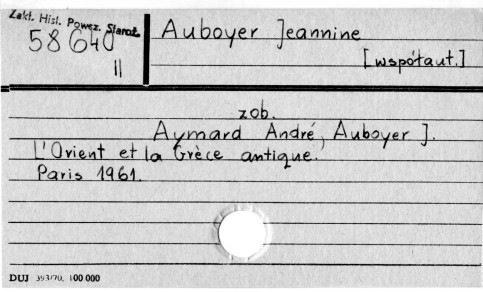 Zakł. Hist. Powsz. Staroż.
58640
II
Auboyer Jeannine
[współaut.]
zob.
Aymard André, Auboyer J.
L'Orient et la Grèce antique.
Paris 1961.
DUJ 393/70. 100 000